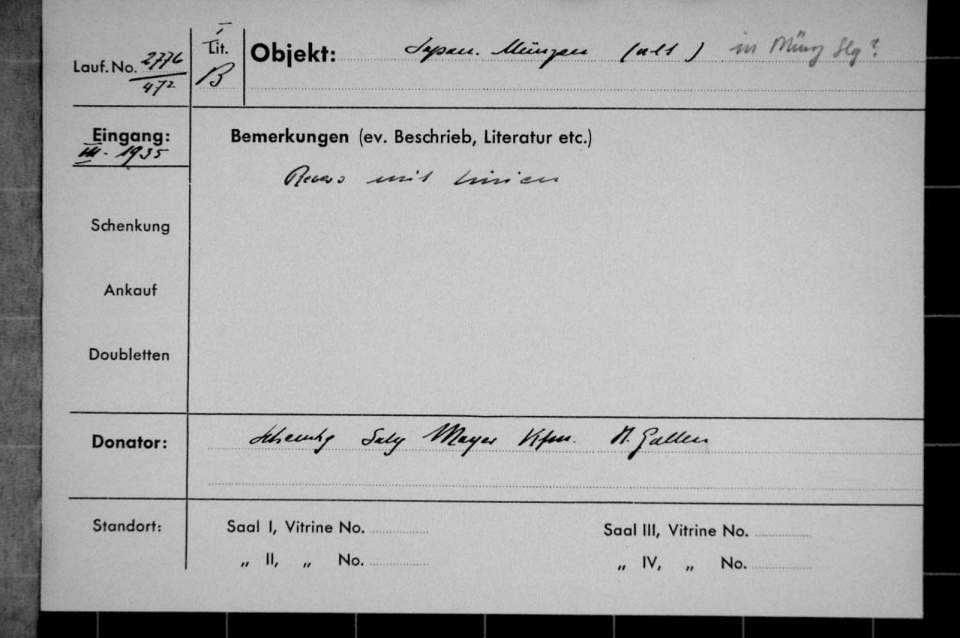 Lauf. No. 2776
472
I
Lit.
B
Objekt: Japan. Münzen (alt) in Münz Slg?
Eingang:
III - 1935
Bemerkungen (ev. Beschrieb, Literatur etc.)
Revers mit Linien
Schenkung
Ankauf
Doubletten
Donator: Schenkg Saly Mayer Kfm. St. Gallen
Standort: Saal I, Vitrine No. Saal III, Vitrine No.
„ II, „ No. „ IV, „ No.